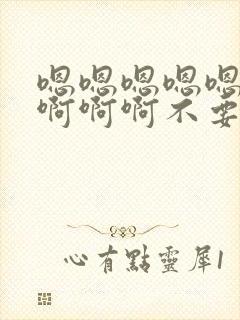 嗯嗯嗯嗯嗯
啊啊啊不要
心有點靈犀1